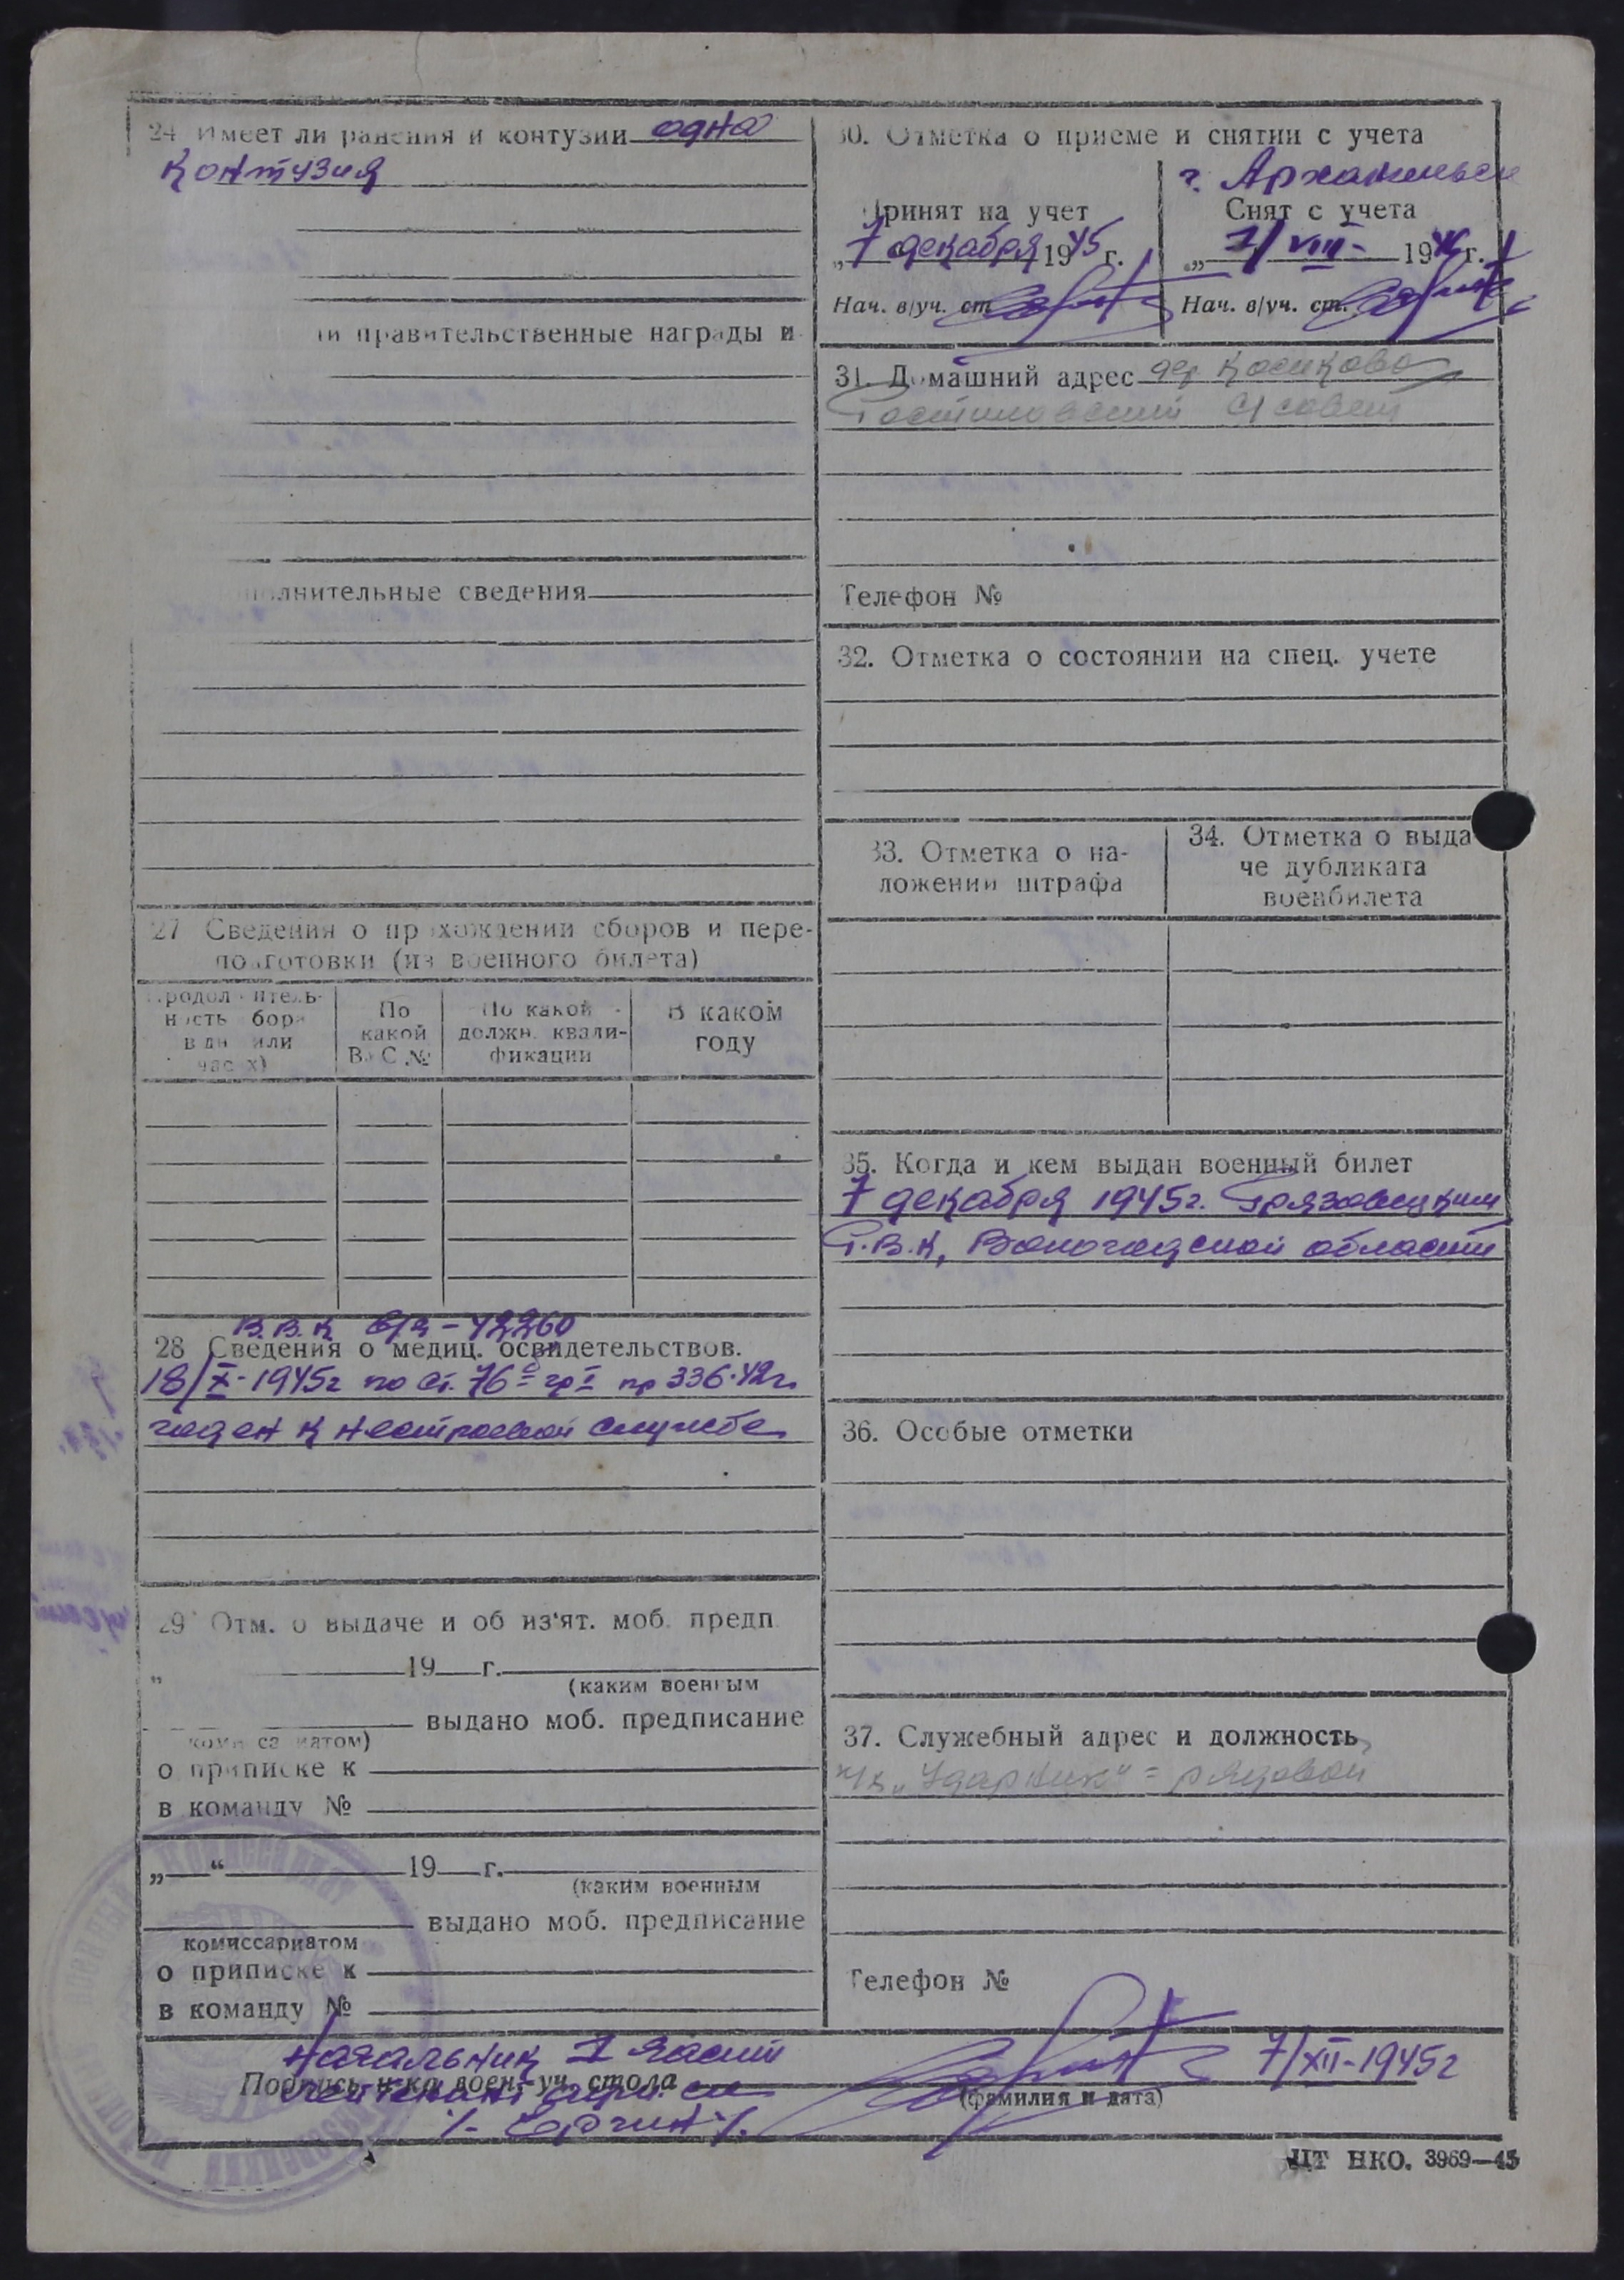 24 Имеет ли ранения и контузии одна
контузия
ли правительственные награды и
полнительные сведения
27 Сведения о прохождении сборов и пере-
подготовки (из военного билета)
Продолжитель-
ность сбора
в дн или
часах)
По
какой
ВУС №
По какой
должн. квали-
фикации
В каком
году
В.В.К в/ч - 42260
28 Сведения о медиц. освидетельствов.
18/X-1945г по ст. 76 гр I пр 336-42г.
годен к нестроевой службе
29 Отм. о выдаче и об из'ят. моб. предп
„ 19 г.
(каким военным
выдано моб. предписание
комиссариатом)
о приписке к
в команду №
„ “ 19 г.
(каким военным
выдано моб. предписание
комиссариатом
о приписке к
в команду №
30. Отметка о приеме и снятии с учета
г. Архангельск
Принят на учет
„7 декабря 1945 г.
Нач. в/уч. ст.
Снят с учета
„1/VIII- 1946 г.
Нач. в/уч. ст.
31. Домашний адрес дер Косиково
Ростиловский с/совет
Телефон №
32. Отметка о состоянии на спец. учете
33. Отметка о на-
ложении штрафа
34. Отметка о выда
че дубликата
военбилета
35. Когда и кем выдан военный билет
7 декабря 1945г. Грязовецким
Р.В.К, Вологодской области
36. Особые отметки
37. Служебный адрес и должность
к/з „Ударник" = рядовой
Телефон №
Начальник I части
Подпись н-ка воен-уч. стола
лейтенант адм. сл
7/XII-1945г
(фамилия и дата)
ЦТ НКО. 3969—45